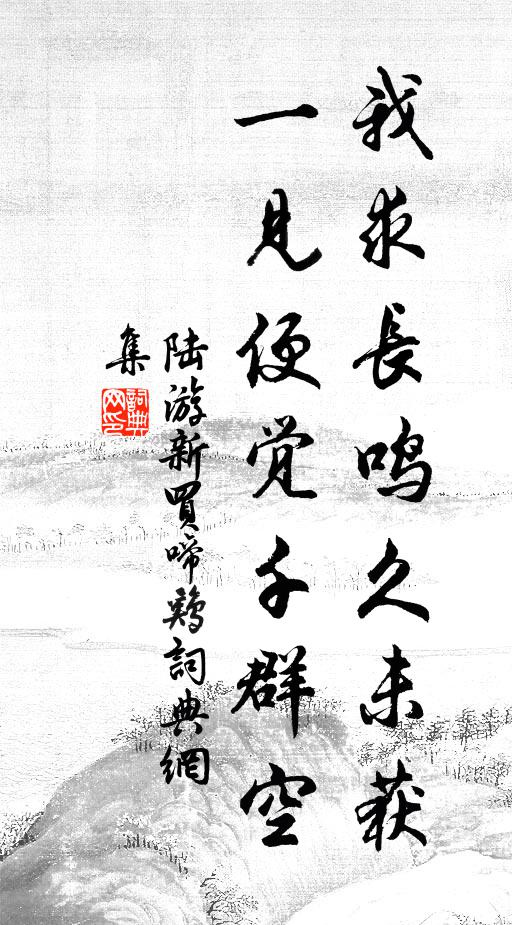 我求長鳴久未获
一見便觉千群空
陆游新買啼鷄詞典網
集
詞典
网印